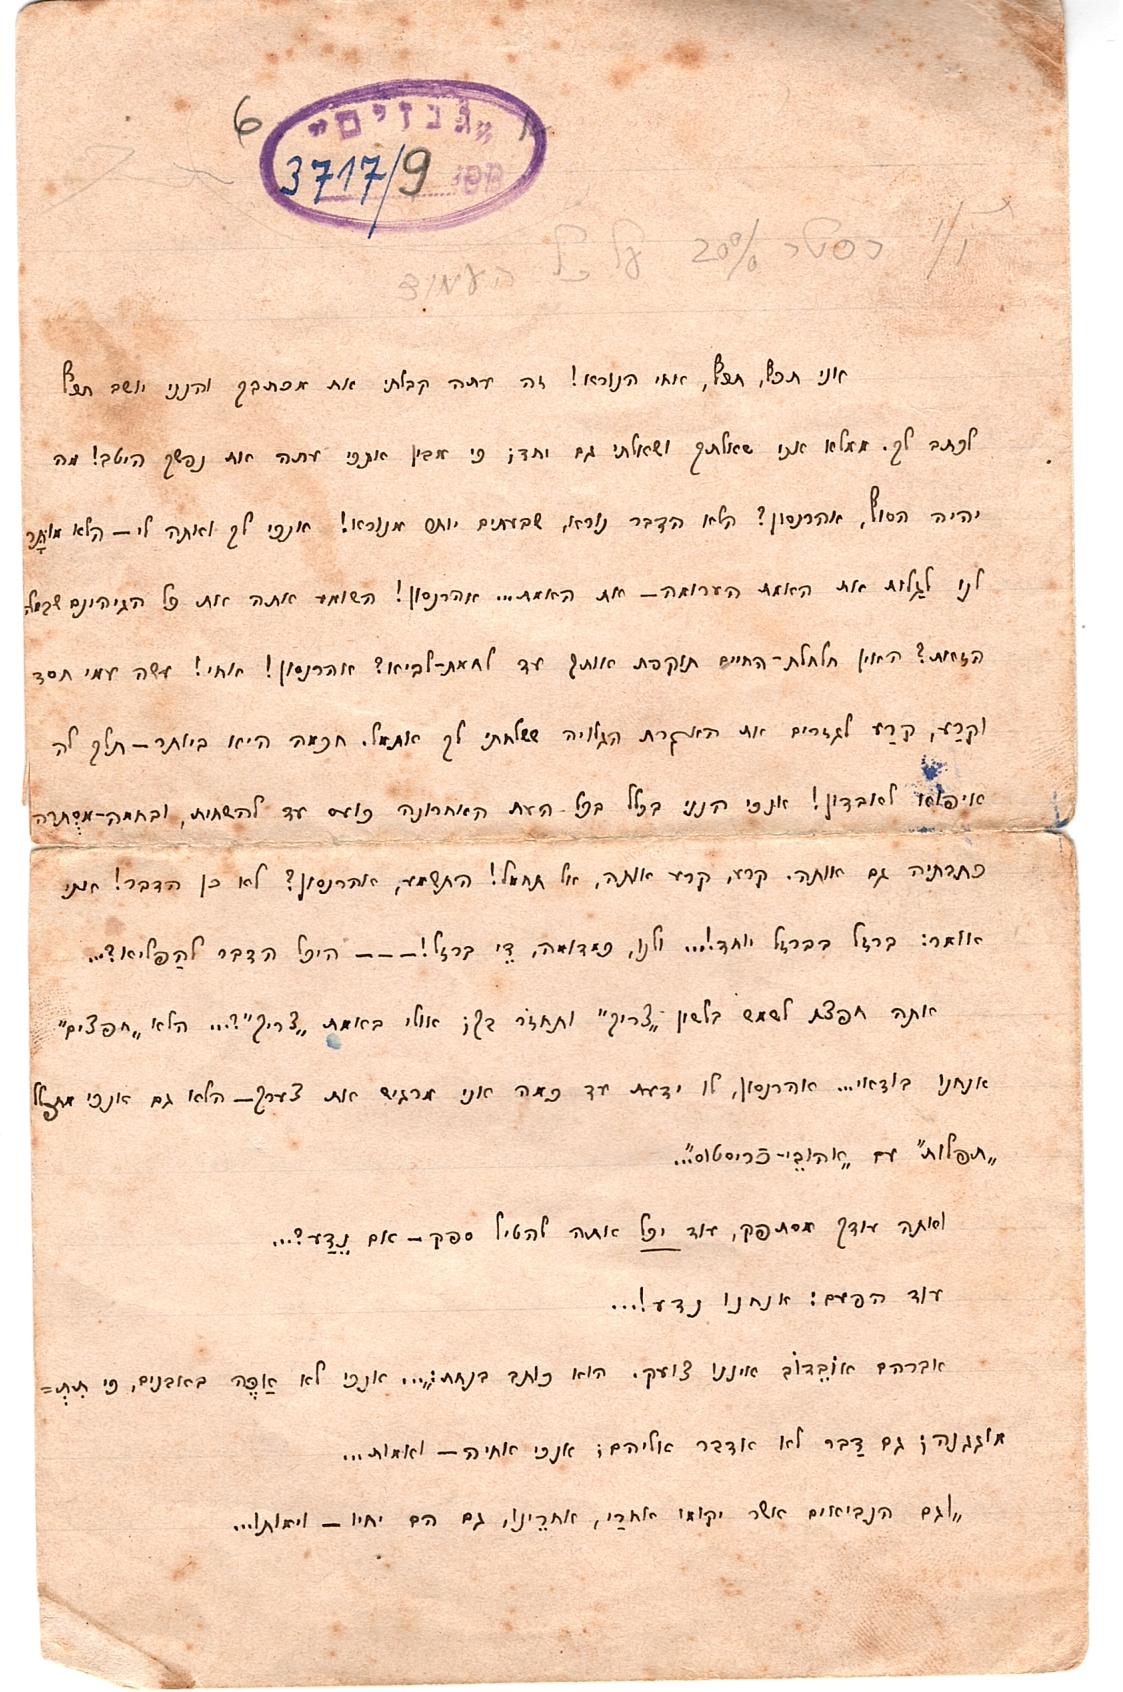 6
„גנזים”
3717/9
1/1 רסטר 20% על כל העמוד
אני חפץ, חפץ, אחי הנורא! זה עתה קבלתי את מכתבך והנני יושב חפץ
לכתב לך. ממלא אני שאלתך ושאלתי גם יחד; כי מבין אנכי עתה את נפשך היטב! מה
יהיה הסוף, אהרנסון? הלא הדבר נורא, שבעתים יותר מנורא! אנכי לך ואתה לי – הלא מותָּר
לנו לגַלות את האמת הערומה – את האמת... אהרנסון! השומע אתה את כל הגיהינם שבמלה
הזאת? האין חלחלת-החיים תוקפת אותך עד לחמת-לביא? אהרנסון! אחי! עשה עמי חסד
וקרַע, קרַע לגזרים את האגרת הגלויה ששלחתי לך אתמול. חכמה היא ביותר – תלך לה
איפוא לאבדון! אנכי הנני בכלל בכל העת האחרונה כועס עד להשחית, ובחמה-מסֻתרה
כתבתיה גם אותה. קרע, קרע אותה, אל תחמל! התשמע, אהרנסון? לא כן הדבר! אני
אומר: ברזל בברזל יוחד!... ולנו, כמדומה, דֵי ברזל! – – – היכל הדבר להַפליאו?...
אתה חפצת לשמש בלשון „צריך” ותחזר בך; אולי באמת „צריך”?... הלא „חפצים”
אנחנו בודאי... אהרנסון, לו ידעת עד כמה אני מרגיש את צערך – הלא גם אנכי מתפלל
„תפלות” עם „אהובֵי-כריסטוס”...
ואתה עודך מסתפק, עוד יכל אתה להטיל ספק – אם נֵדַע?...
עוד הפעם: אנחנו נדע!...
אברהם אוֹבֵדוֹב איננו צועק. הוא כותב בנחת: „... אנכי לא אַכֶּה באבנים, כי תִתְ=
מוגגנה; גם דָבר לא אדבר אליהם; אנכי אחיה – ואמות...
„וגם הנביאים אשר יקומו אחרַי, אחרֵינו, גם הם יחיו – וימותו...